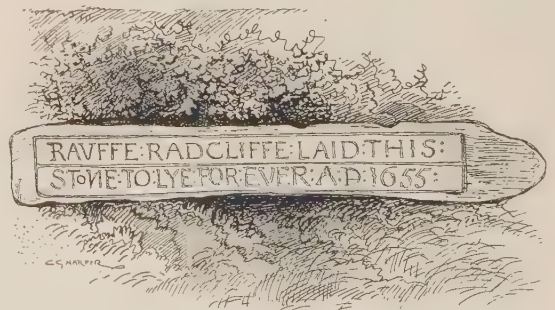 RAVFFE:RADCLIFFE:LAID:THIS:
STONE:TO:LYE:FOR:EVER:A·D:1655:
C G HARPER